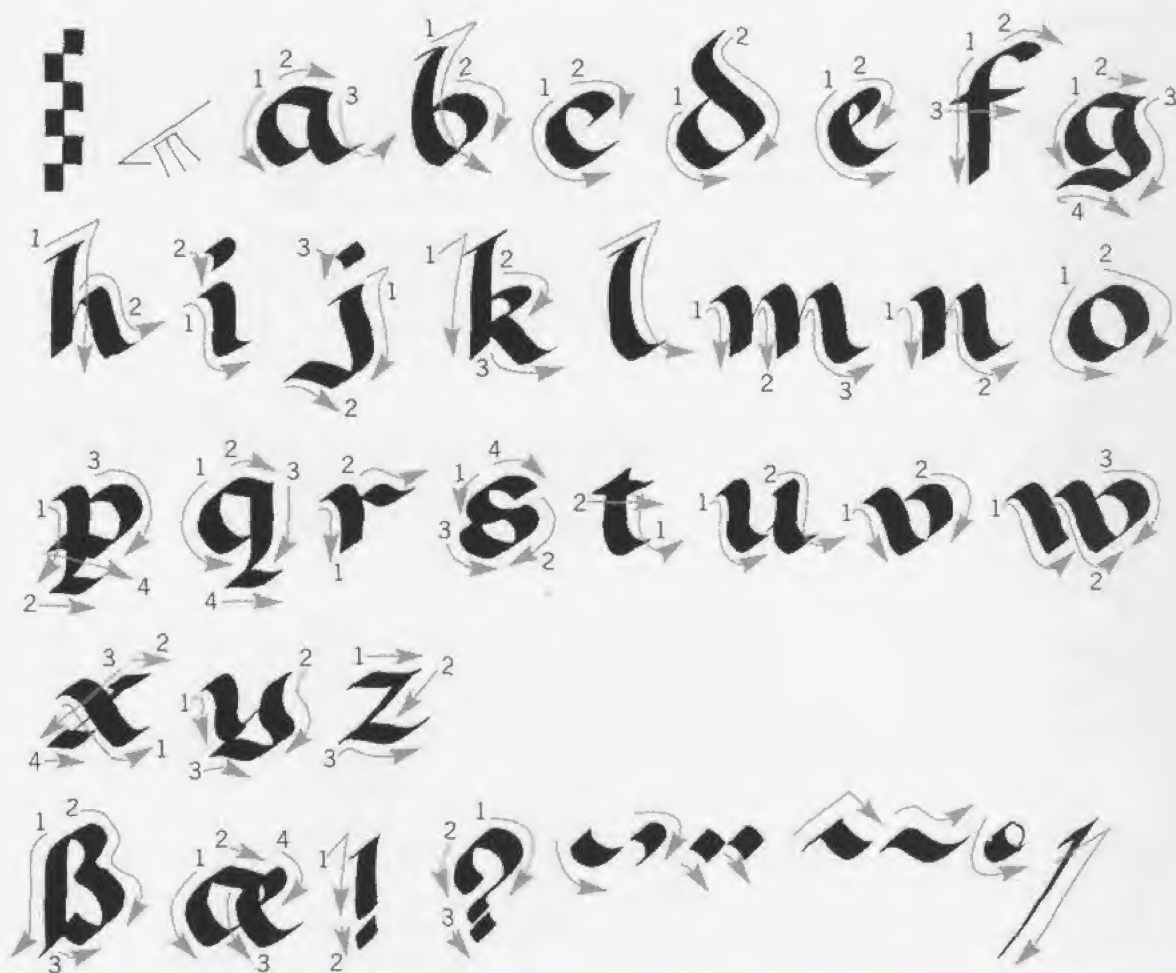 a b c d e f g
h i j k l m n o
p q r s t u v w
x y z
ß æ ! ? ˘ ’ ¨ ^ ~ ° /